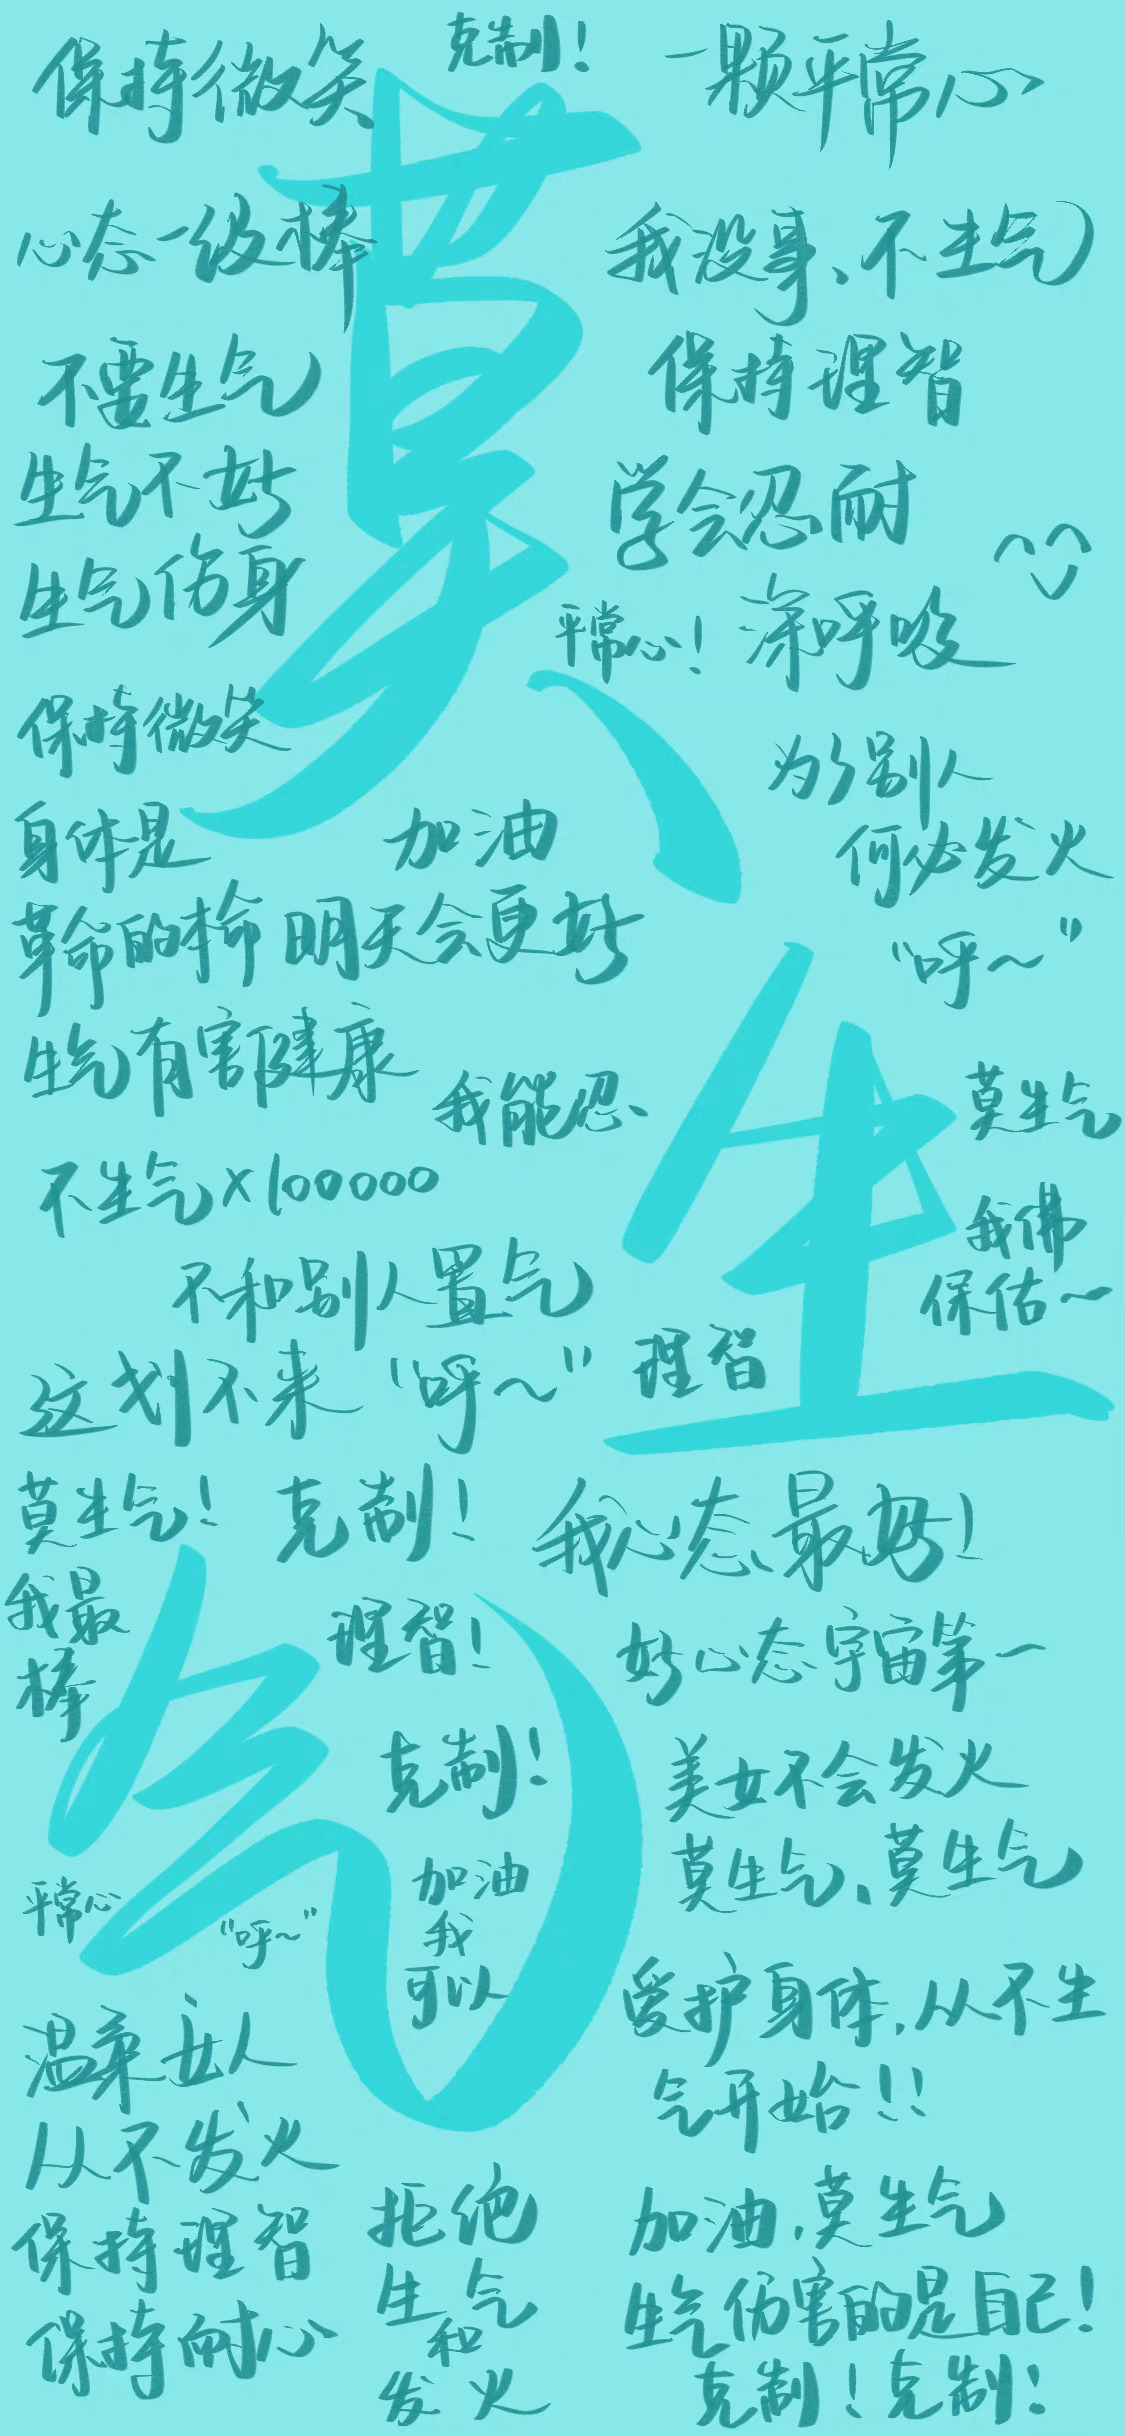 莫生气
保持微笑
克制！
一颗平常心
心态一级棒
我没事、不生气
不要生气
保持理智
生气不好
学会忍耐
生气伤身
平常心！
深呼吸
保持微笑
为了别人
何必发火
身体是
革命的本命
加油
明天会更好
“呼～”
生气有害健康
我能忍、
莫生气
不生气×100000
我佛
保佑～
不和别人置气
这划不来
“呼～”
理智
莫生气！
克制！
我心态最好！
我最
棒
理智！
好心态宇宙第一
克制！
美女不会发火
莫生气、莫生气
平常心
“呼～”
加油
我
可以
爱护身体，从不生
气开始！！
温柔女人
从不发火
保持理智
保持耐心
拒绝
生气
和
发火
加油，莫生气
生气伤害的是自己！
克制！克制！